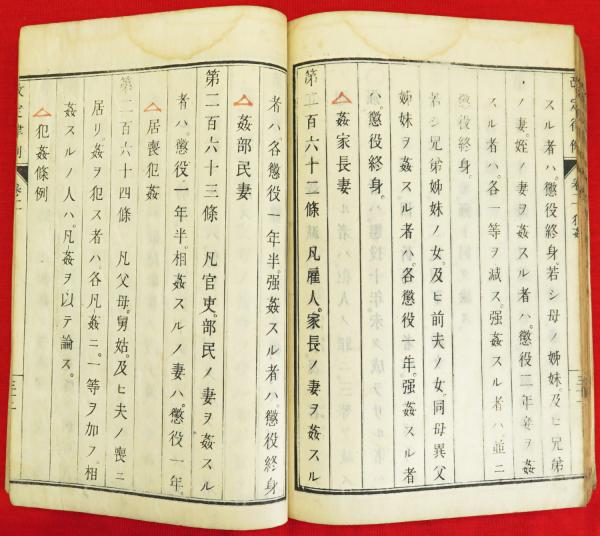 スル者ハ。懲役終身。若シ母ノ姉妹。及ヒ兄弟
ノ妻。姪ノ妻ヲ姦スル者ハ。懲役二年。妾ヲ姦
スル者ハ。各一等ヲ減ス。強姦スル者ハ。並ニ
懲役終身
若シ兄弟姉妹ノ女。及ヒ前夫ノ女。同母異父
姉妹ヲ姦スル者ハ。各懲役 年。強姦スル者
ハ。懲役終身。
△姦家長妻
第二百六十二條 凡雇人。家長ノ妻ヲ姦スル
者ハ。各懲役一年半。强姦スル者ハ。懲役終身
△姦部民妻
第二百六十三條 凡官吏。部民ノ妻ヲ姦スル
者ハ。懲役一年半。相姦スルノ妻ハ。懲役一年。
△居喪犯姦
第二百六十四條 凡父母。舅姑。及ヒ夫ノ喪ニ
居リ。姦ヲ犯ス者ハ。各凡姦ニ。一等ヲ加フ。相
姦スルノ人ハ。凡姦ヲ以テ論ス。
△犯姦條例
改定律例 卷二
三十二
改定律例 卷二 犯姦